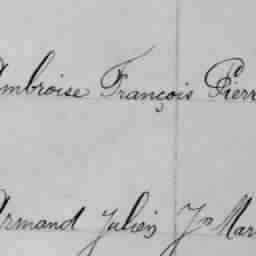 Ambroise François Pierr
Armand Julien Jn Mar